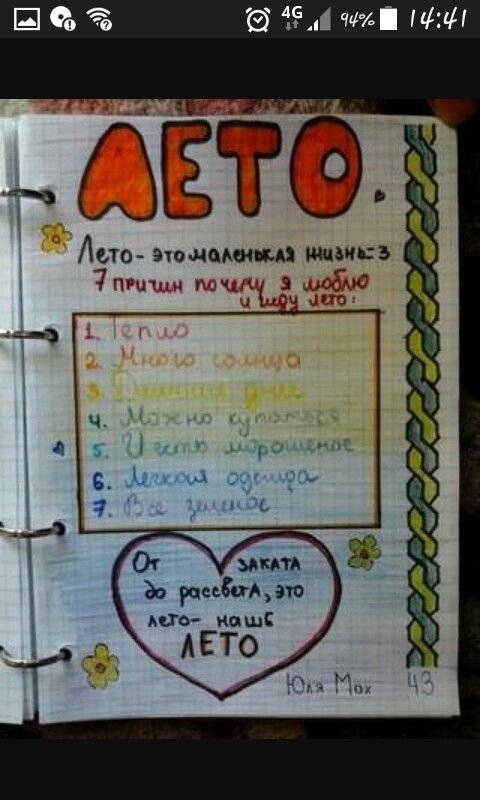 4G 94% 14:41
ЛЕТО.
Лето- это маленькая жизнь=3
7 причин почему я люблю
и жду лето:
1. Тепло
2. Много солнца
3. Длинные дни
4. Можно купаться
5. И есть мороженое
6. Легкая одежда
7. Все зеленое
От ЗАКАТА
до рассвета, это
лето- наше
ЛЕТО
Юля Мох 43